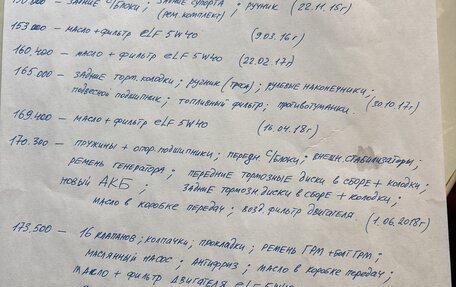 задние с/блоки; задние супорта ; ручник (22.11.15г)
(рем.комплект)
153.000 – масло+фильтр eLF 5W40 (9.03.16г)
160.400 – масло + фильтр eLF 5W40 (22.02.17г)
165.000 – задние торм.колодки; ручник (троса); рулевые наконечники;
подвесной подшипник; топливный фильтр; противотуманки. (30.10.17г)
169.400 – масло+фильтр eLF 5W40 (16.04.18г)
170.300 – пружины + опор.подшипники; передн с/блоки; внешн.стабилизаторы;
ремень генератора; передние тормозные диски в сборе + колодки;
новый АКБ; задние тормозн.диски в сборе + колодки;
масло в коробке передач; возд фильтр двигателя. (1.06.2018г)
173.500 – 16 клапанов; колпачки; прокладки; ремень ГРМ +болт ГРМ;
маслянный насос; антифриз; масло в коробке передач;
масло + фильтр двигателя eLF 5W40